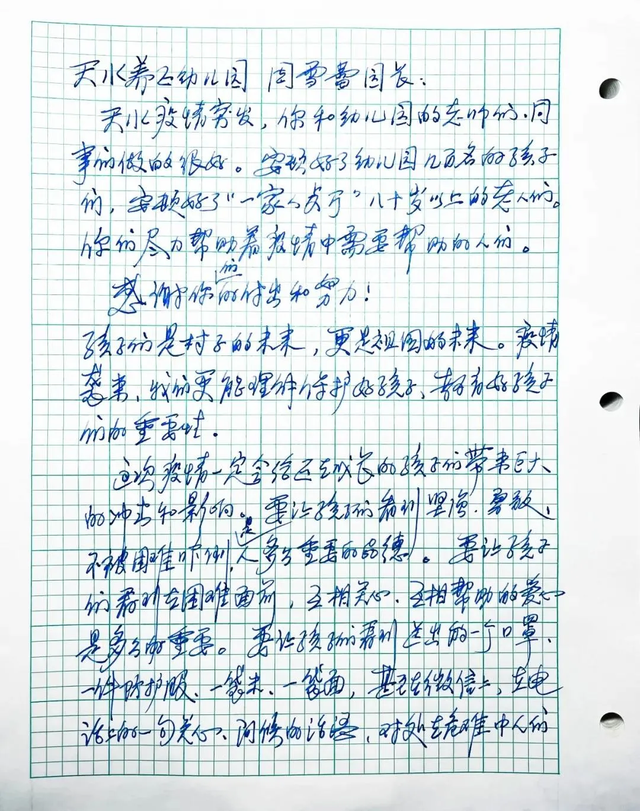 天水养正幼儿园 闫雪蕾园长：
天水疫情突发，你和幼儿园的老师们、同
事们做的很好。安顿好了幼儿园几百名的孩子
们，安顿好了“一家人餐厅”八十岁以上的老人们。
你们尽力帮助着疫情中需要帮助的人们。
感谢你们的付出和努力！
孩子们是村子的未来，更是祖国的未来。疫情
袭来，我们更能理解保护好孩子、教育好孩子
们的重要性。
这次疫情一定会给正在成长的孩子们带来巨大
的冲击和影响。要让孩子们看到坚强、勇敢、
不被困难吓倒，是人多么重要的品德。要让孩子
们看到在困难面前，互相关心、互相帮助的爱心
是多么的重要。要让孩子们看到送出的一个口罩、
一件防护服、一袋米、一袋面，甚至在微信上，在电
话上的一句关心、问候的话语，对处在危难中人们